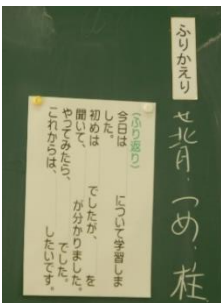 ふりかえり
せ背・つめ・柱
(ふり返り)
今日は　　　について学習しました。
初めは　　　でしたが、　　　を
聞いて、　　　が分かりました。
やってみたら、　　　でした。
これからは、　　　したいです。